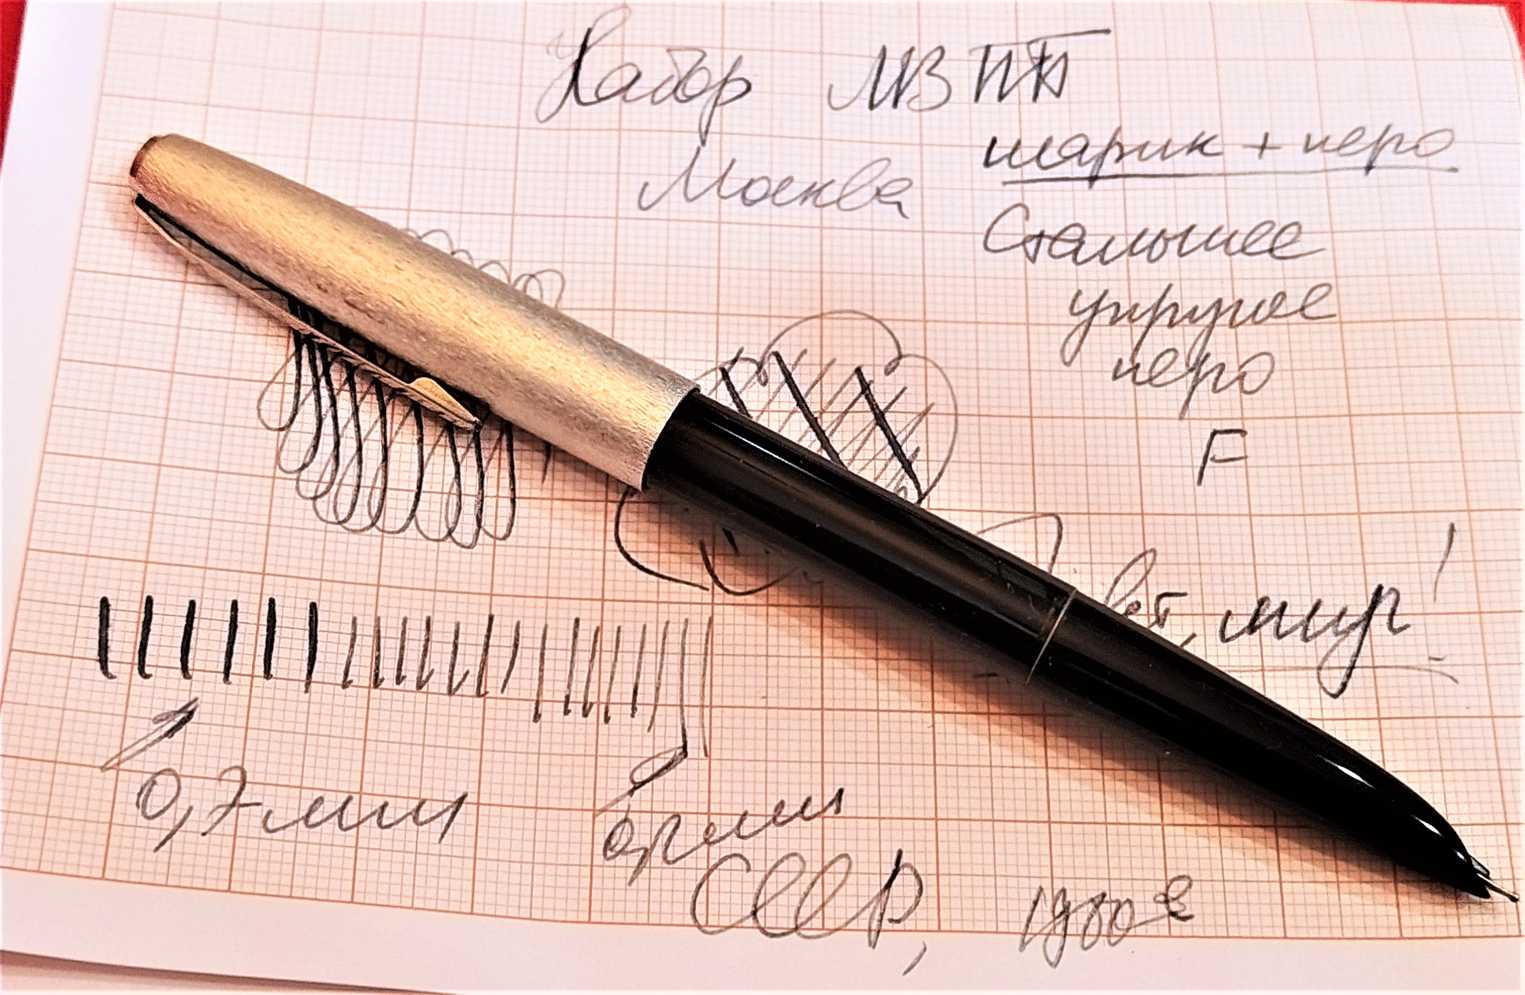 Набор МЗПП
шарик + перо
Москва
Стальное
упругое
перо
F
вет, мир!
0,7 мм
0,2 мм
СССР, 1980е